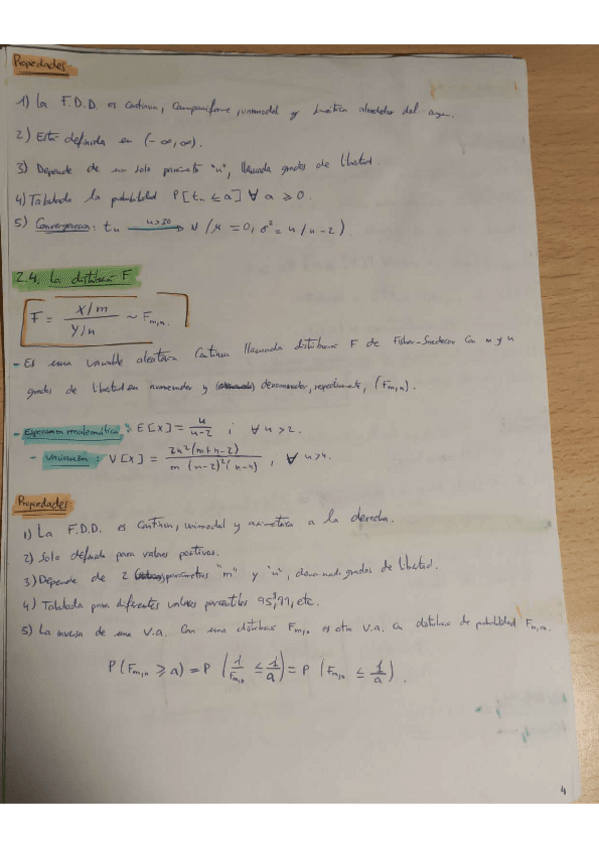 Propiedades.
1) La F.D.D. es continua, campaniforme, unimodal y simétrica alrededor del origen.
2) Está definida en (-∞,∞).
3) Depende de un solo parámetro "n", llamada grados de libertad.
4) Tabulada la probabilidad P[tn ≤ a] ∀ a ≥ 0.
5) Convergencia: tn n>30 → N (μ = 0, σ² = n/n-2).
2.4. La distribución F
F = X/m / Y/n ~ Fm,n.
- Es una variable aleatoria continua llamada distribución F de Fisher-Snedecor con m y n
grados de libertad en numerador y denominador, respectivamente, (Fm,n).
- Esperanza matemática: E[X] = n / n-2 ; ∀ n>2.
- Varianza: V[X] = 2n²(m+n-2) / m (n-2)²(n-4) , ∀ n>4.
Propiedades:
1) La F.D.D. es continua, unimodal y asimétrica a la derecha.
2) Solo definida para valores positivos.
3) Depende de 2 parámetros "m" y "n", denominados grados de libertad.
4) Tabulada para diferentes valores percentiles 95, 99, etc.
5) La inversa de una v.a. con una distribución Fm,n es otra v.a. con distribución de probabilidad Fn,m.
P(Fm,n ≥ a) = P (1/Fm,n ≤ 1/a) = P (Fn,m ≤ 1/a).
4